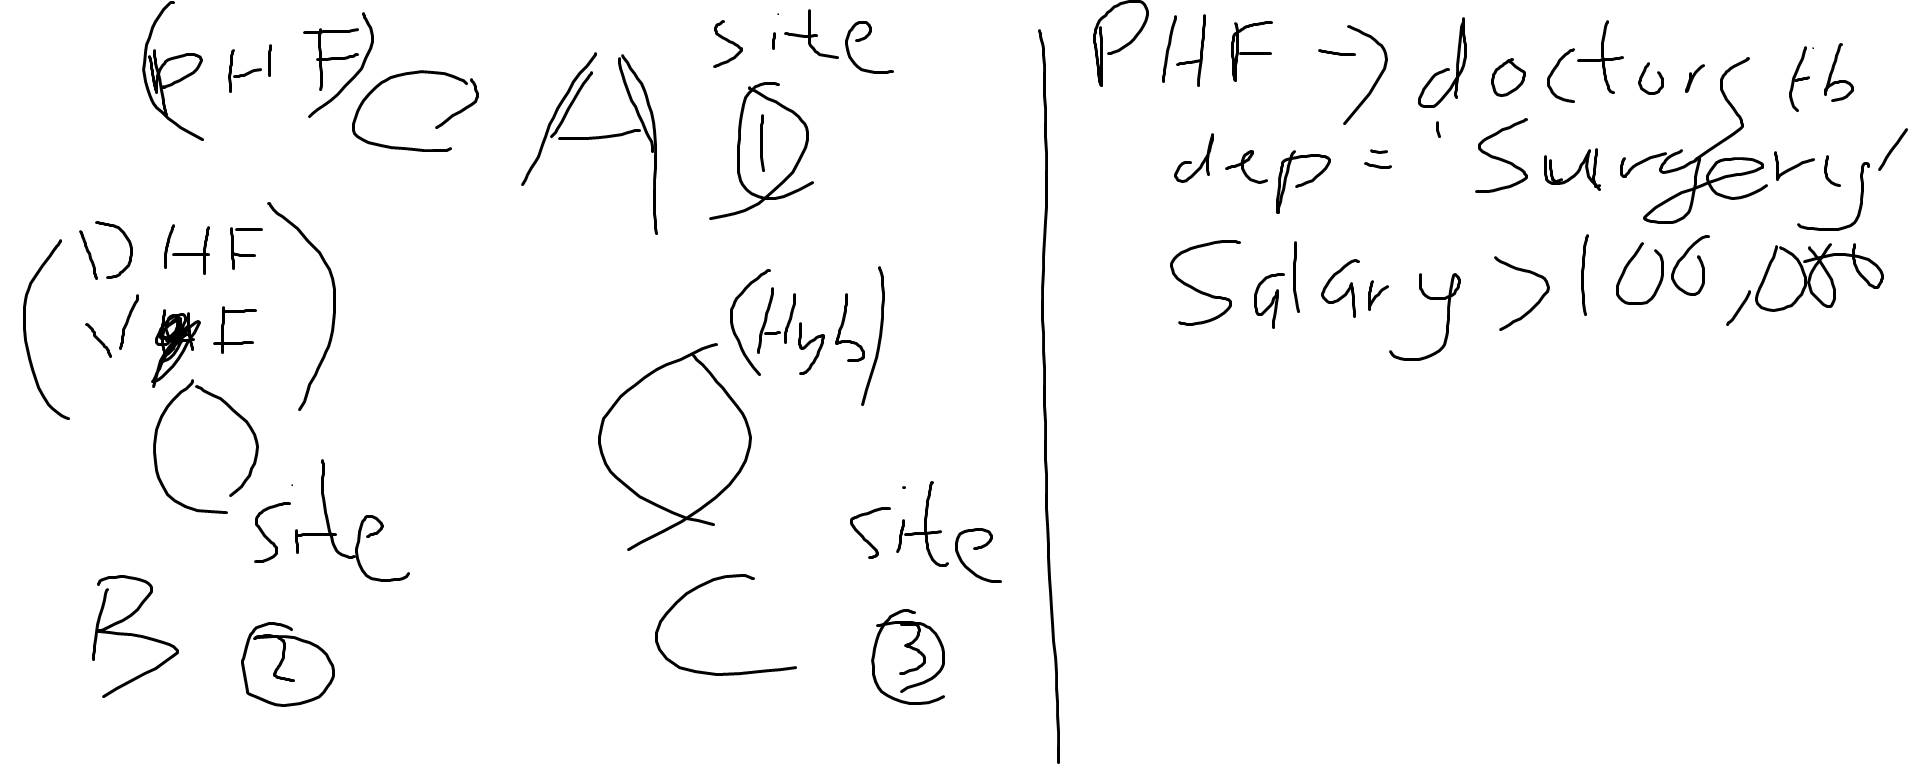 (PHF) A site
1
(DHF
VF)
(Hyb)
site
B 2
site
C 3
PHF → doctors tb
dep = 'Surgery'
Salary > 100,000